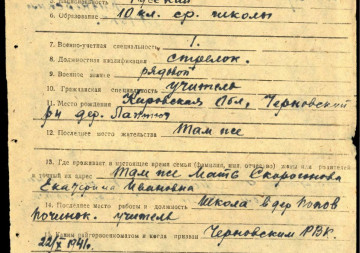 Русский
6. Образование 10 кл. ср. школы
7. Военно-учетная специальность 1.
8. Должностная квалификация стрелок.
9. Военное звание рядовой
10. Гражданская специальность учитель
11. Место рождения Кировская обл., Черновский
р-н дер.
12. Последнее место жительства там же
13. Где проживает в настоящее время семья (фамилия, имя, отчество) жены или родителей
и точный их адрес там же мать
Екатерина Ивановна
14. Последнее место работы и должность Школа в дер Попов
Починок. учитель
15. Каким райгорвоенкоматом и когда призван Черновским РВК
1941г.